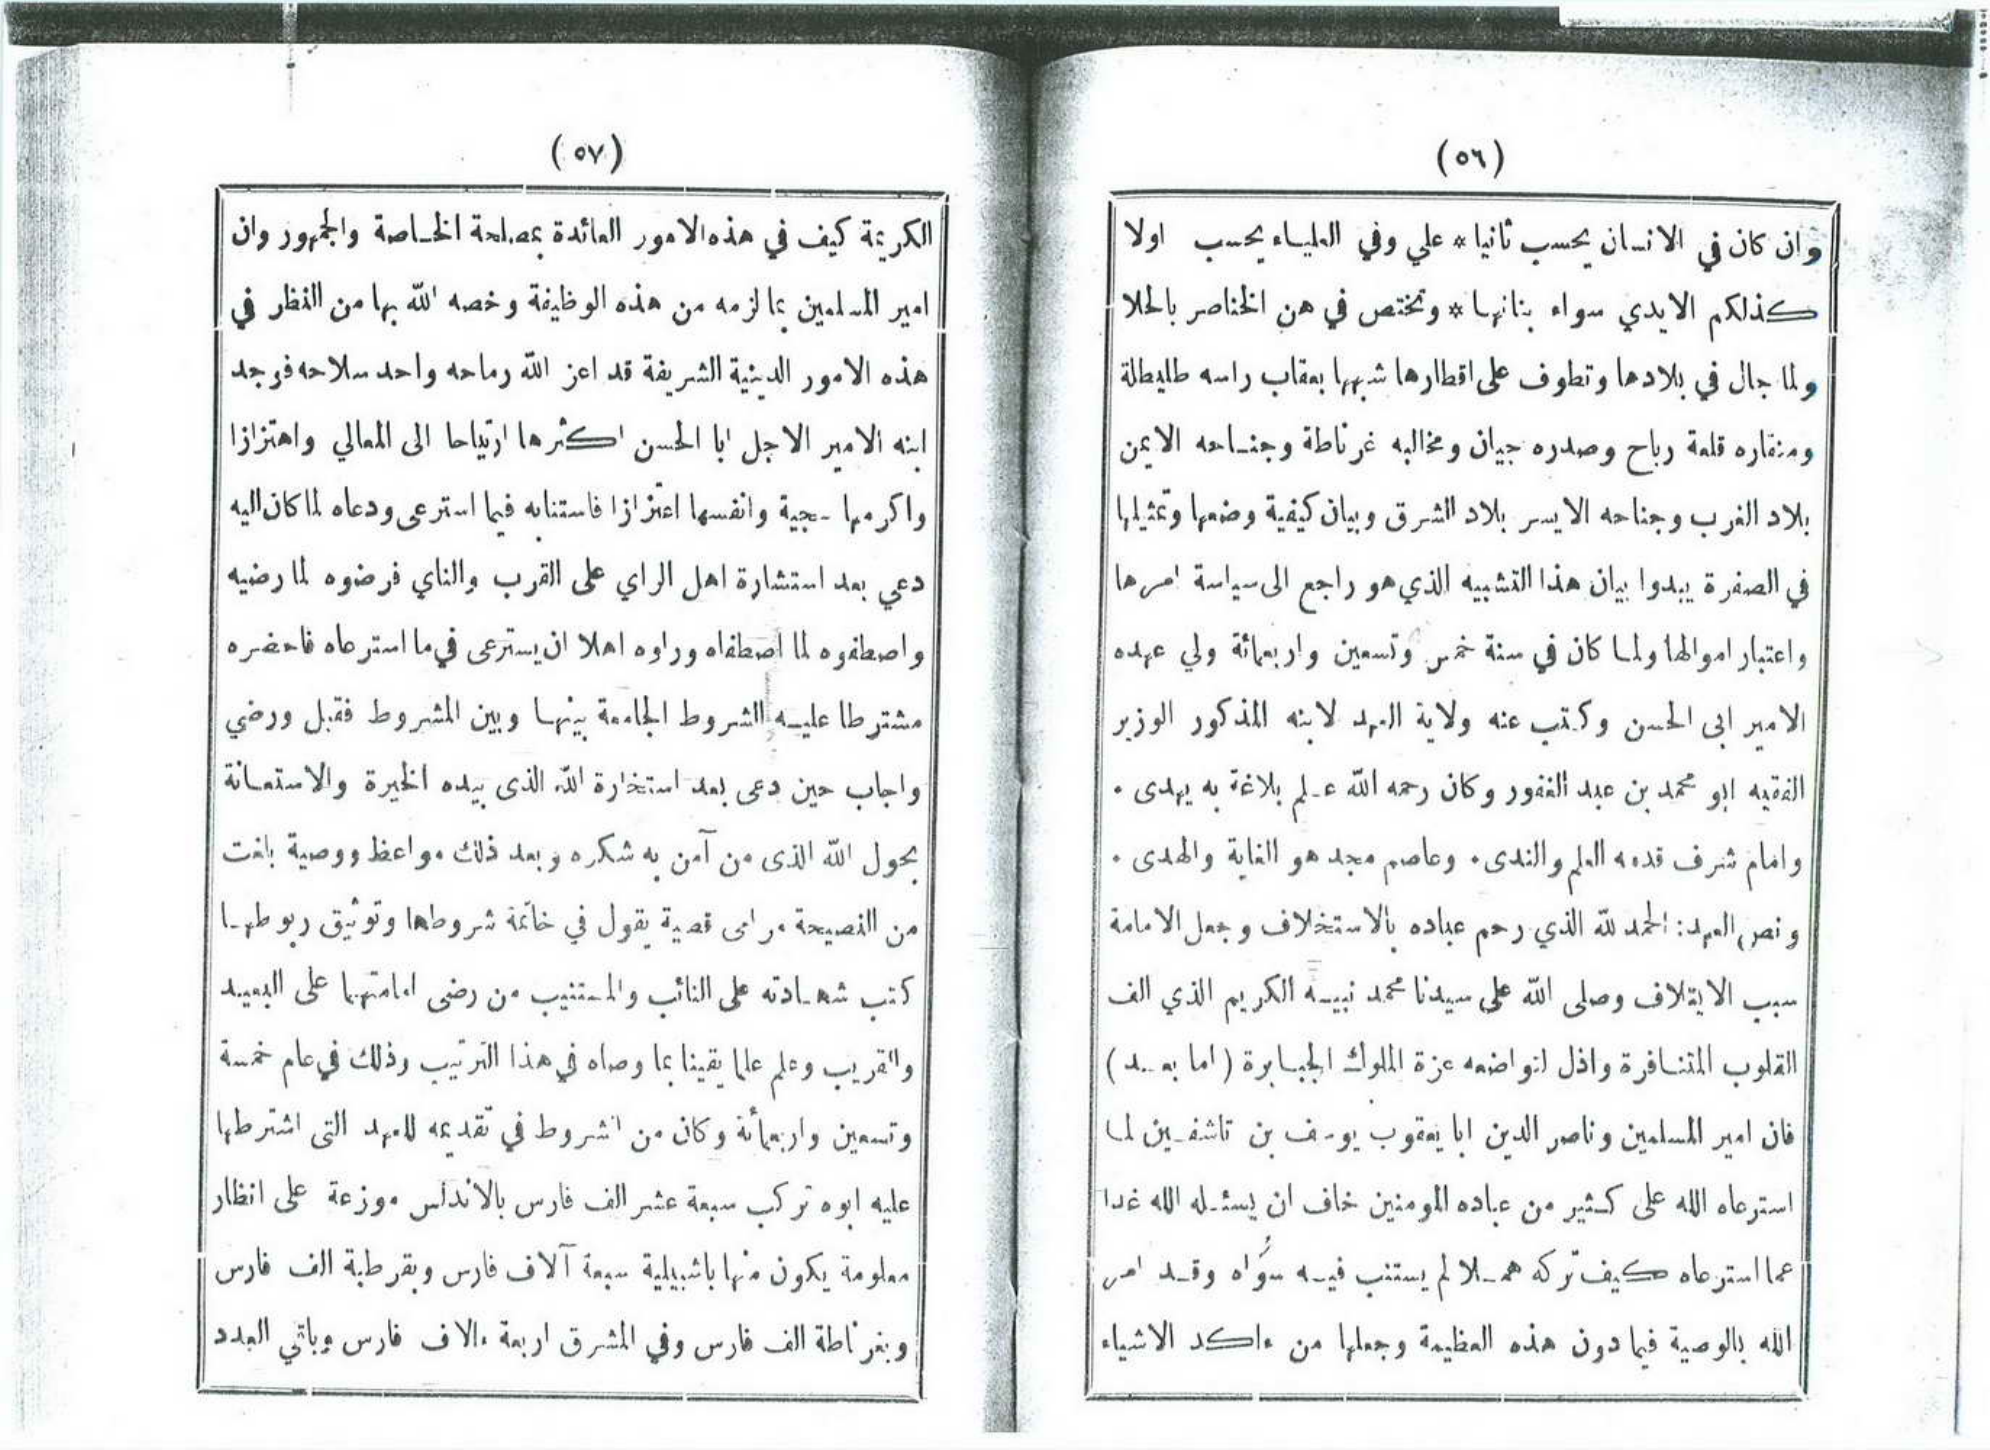 (٥٦)
وان كان في الانسان يحسب ثانيا * علي وفي العلياء يحسب اولا
كذلكم الايدي سواء بنانها * وتختص في هن الخناصر بالحلا
ولما جال في بلادها وتطوف على اقطارها شبهها بعقاب راسه طليطلة
ومنقاره قلعة رباح وصدره جيان ومخالبه غرناطة وجناحه الايمن
بلاد الغرب وجناحه الايسر بلاد الشرق وبيان كيفية وضعها وتمثيلها
في الصفرة يبدوا بيان هذا التشبيه الذي هو راجع الى سياسة امرها
واعتبار اموالها ولما كان في سنة خمس وتسعين واربعمائة ولي عهده
الامير ابى الحسن وكتب عنه ولاية العهد لابنه المذكور الوزير
الفقيه ابو محمد بن عبد الغفور وكان رحمه الله علم بلاغة به يهدى ٠
وامام شرف قدمه العلم والندى ٠ وعاصم مجد هو الغاية والهدى ٠
ونص العهد: الحمد لله الذي رحم عباده بالاستخلاف وجعل الامامة
سبب الايتلاف وصلى الله على سيدنا محمد نبيه الكريم الذي الف
القلوب المتنافرة واذل لتواضعه عزة الملوك الجبابرة (اما بعد)
فان امير المسلمين وناصر الدين ابا يعقوب يوسف بن تاشفين لما
استرعاه الله على كثير من عباده المومنين خاف ان يسئله الله غدا
عما استرعاه كيف تركه هملا لم يستنب فيه سُواه وقد امر
الله بالوصية فيما دون هذه العظيمة وجعلها من ءاكد الاشياء
(٥٧)
الكريمة كيف في هذه الامور العائدة بمصلحة الخاصة والجمهور وان
امير المسلمين بما لزمه من هذه الوظيفة وخصه الله بها من النظر في
هذه الامور الدينية الشريفة قد اعز الله رماحه واحد سلاحه فوجد
ابنه الامير الاجل ابا الحسن اكثرها ارتياحا الى المعالي واهتزازا
واكرمها سجية وانفسها اعتزازا فاستنابه فيما استرعى ودعاه لما كان اليه
دعي بعد استشارة اهل الراي على القرب والناي فرضوه لما رضيه
واصطفوه لما اصطفاه وراوه اهلا ان يسترعى في ما استرعاه فاحضره
مشترطا عليه الشروط الجامعة بينها وبين المشروط فقبل ورضي
واجاب حين دعى بعد استخارة الله الذى بيده الخيرة والاستعانة
بحول الله الذى من آمن به شكره وبعد ذلك مواعظ ووصية بلغت
من النصيحة مرامى قصية يقول في خاتمة شروطها وتوثيق ربوطها
كتب شهادته على النائب والمستنيب من رضى امامتهما على البعيد
والقريب وعلم علما يقينا بما وصاه في هذا الترتيب وذلك في عام خمسة
وتسعين واربعمأئة وكان من الشروط في تقديمه للعهد التى اشترطها
عليه ابوه تركب سبعة عشر الف فارس بالاندلس موزعة على انظار
معلومة يكون منها باشبيلية سبعة آلاف فارس وبقرطبة الف فارس
وبغرناطة الف فارس وفي المشرق اربعة ءالاف فارس وباقي العدد